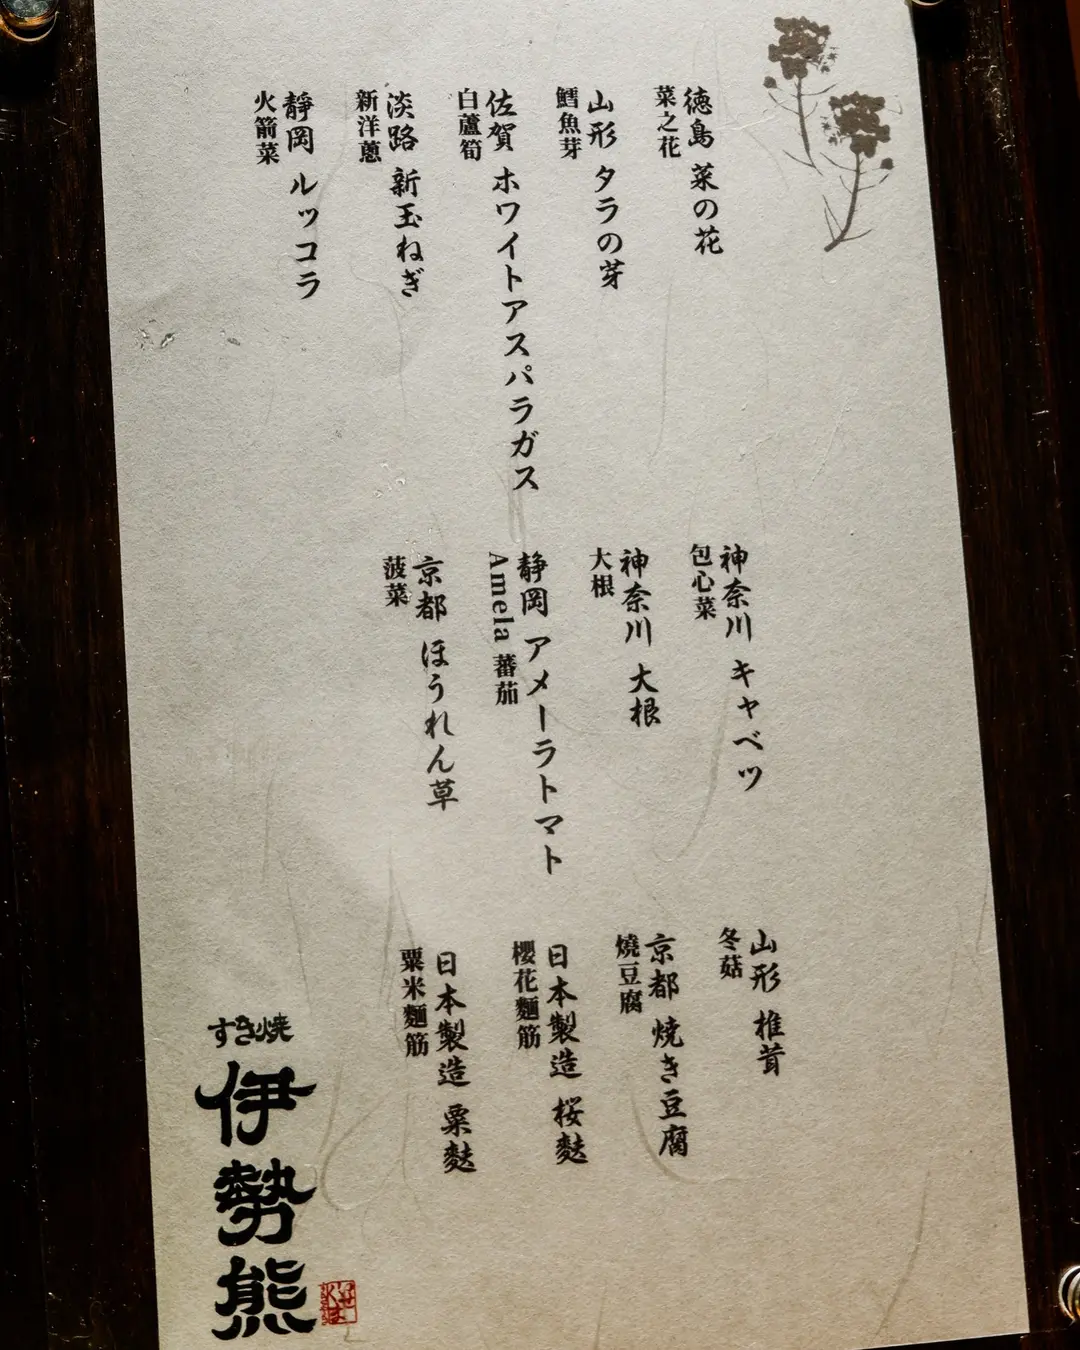 徳島 菜の花
菜之花
山形 タラの芽
鱈魚芽
佐賀 ホワイトアスパラガス
白蘆筍
淡路 新玉ねぎ
新洋蔥
靜岡 ルッコラ
火箭菜
神奈川 キャベツ
包心菜
神奈川 大根
大根
靜岡 アメーラトマト
Amela 蕃茄
京都 ほうれん草
菠菜
山形 椎茸
冬菇
京都 焼き豆腐
燒豆腐
日本製造 桜麩
櫻花麵筋
日本製造 粟麩
粟米麵筋
すき焼
伊勢熊